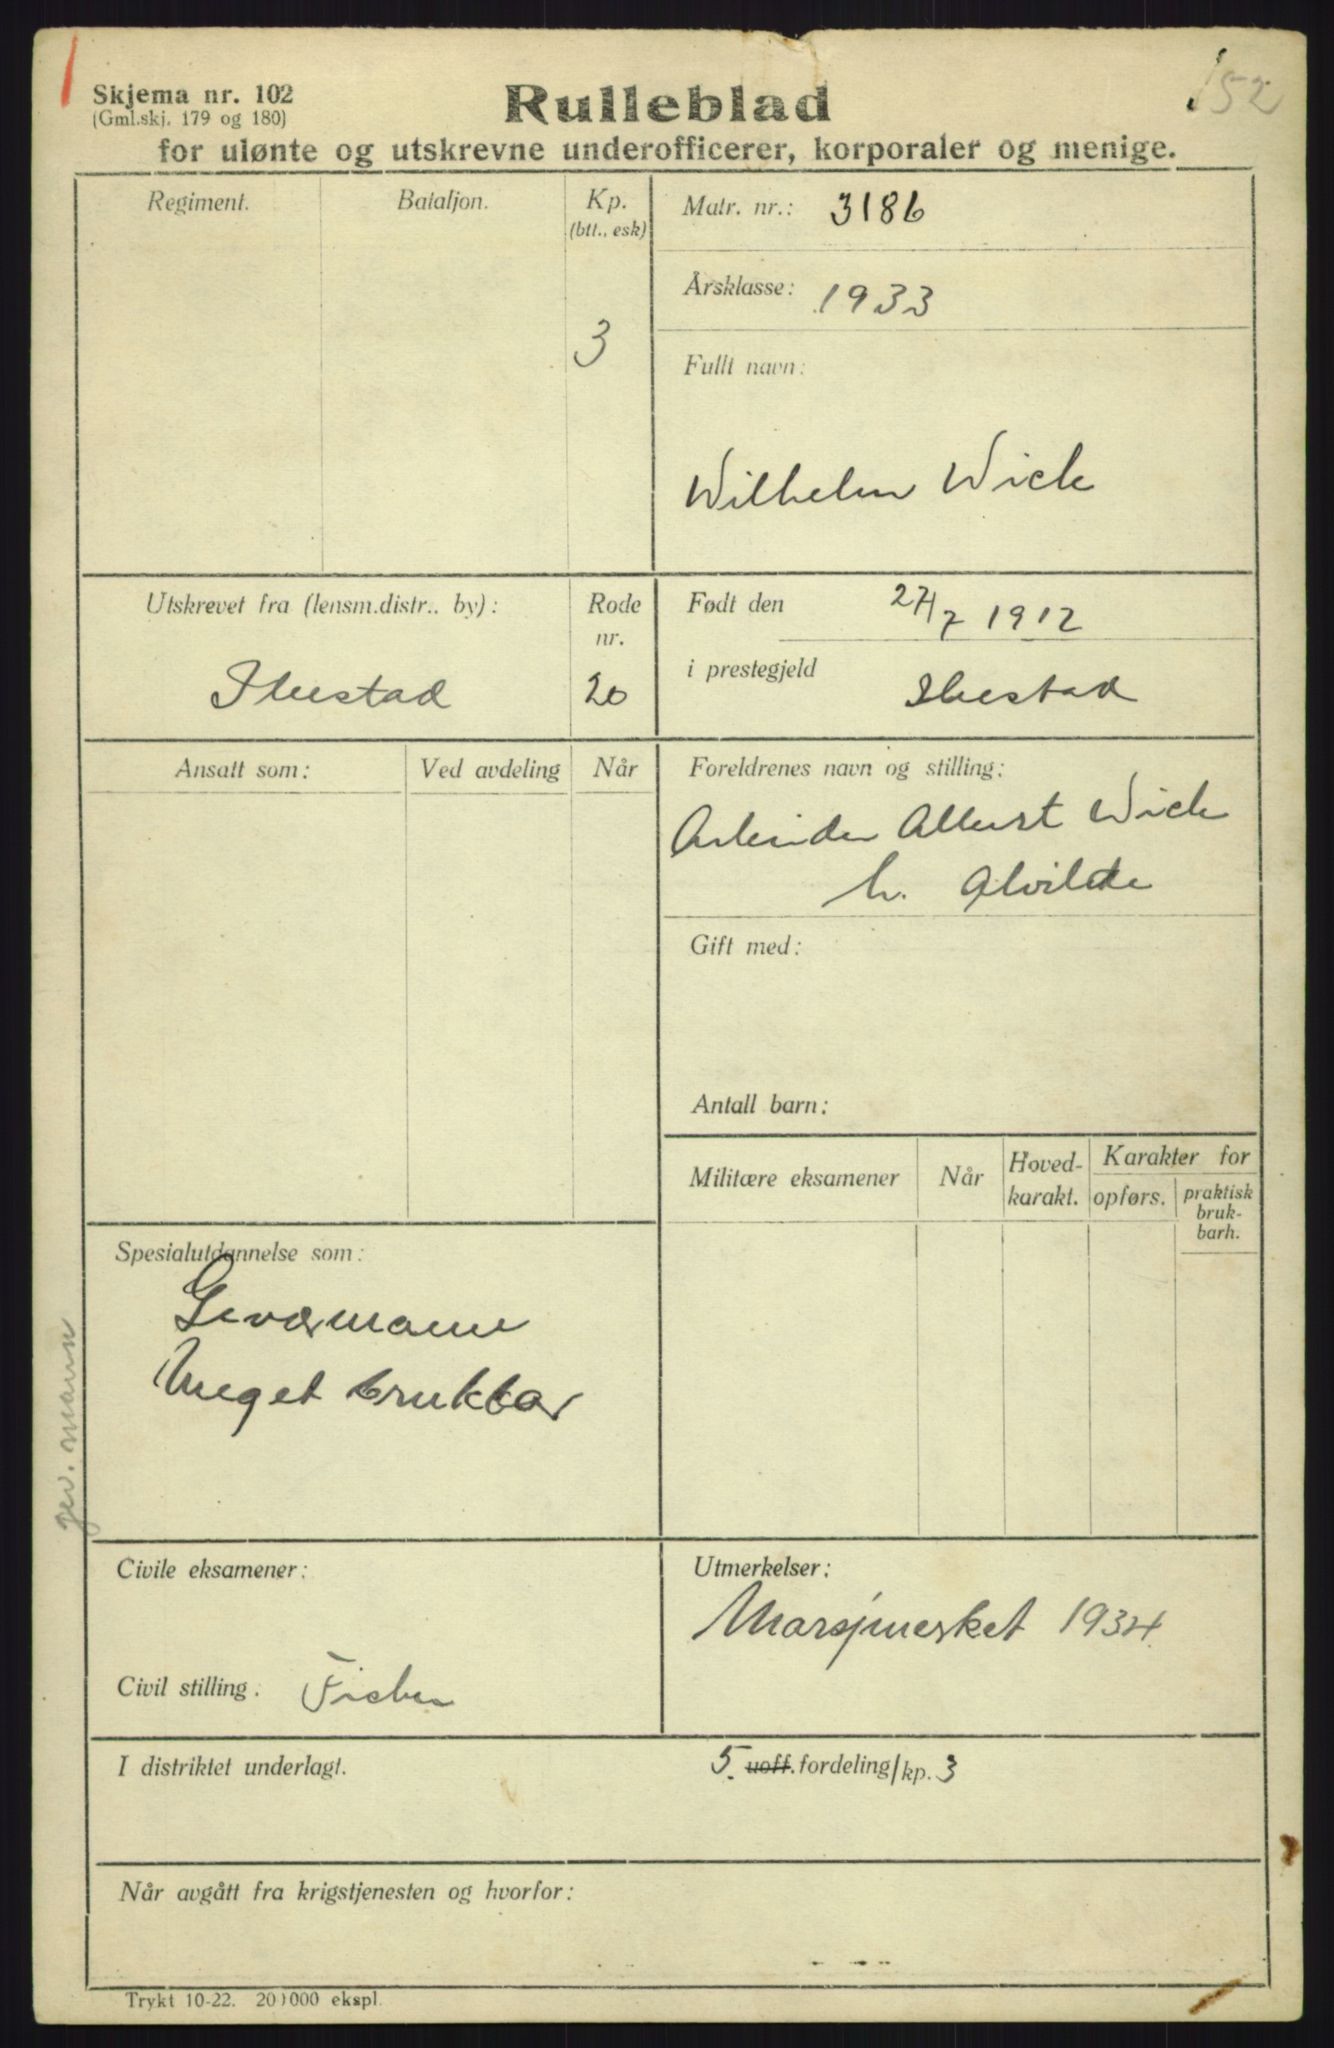 152
Skjema nr. 102
(Gml.skj. 179 og 180)
Rulleblad
for ulønte og utskrevne underofficerer, korporaler og menige.
Regiment.
Bataljon.
Kp.
(btt., esk)
3
Matr. nr.: 3186
Årsklasse: 1933
Fullt navn:
Wilhelm Wick
Utskrevet fra (lensm.distr.. by):
Ibestad
Rode
nr.
20
Født den 27/7 1912
i prestegjeld Ibestad
Ansatt som:
Ved avdeling
Når
Foreldrenes navn og stilling:
Arbeider Albert Wick
h. Alvilde
Gift med:
Antall barn:
Militære eksamener
Når
Hoved-
karakt.
Karakter for
opførs.
praktisk
bruk-
barh.
Spesialutdannelse som:
Geværmann
Meget brukbar
gev. mann
Civile eksamener:
Civil stilling: Fisker
Utmerkelser:
Marsjmerket 1934
I distriktet underlagt.
5. uoff. fordeling/kp. 3
Når avgått fra krigstjenesten og hvorfor:
Trykt 10-22. 20)000 ekspl.